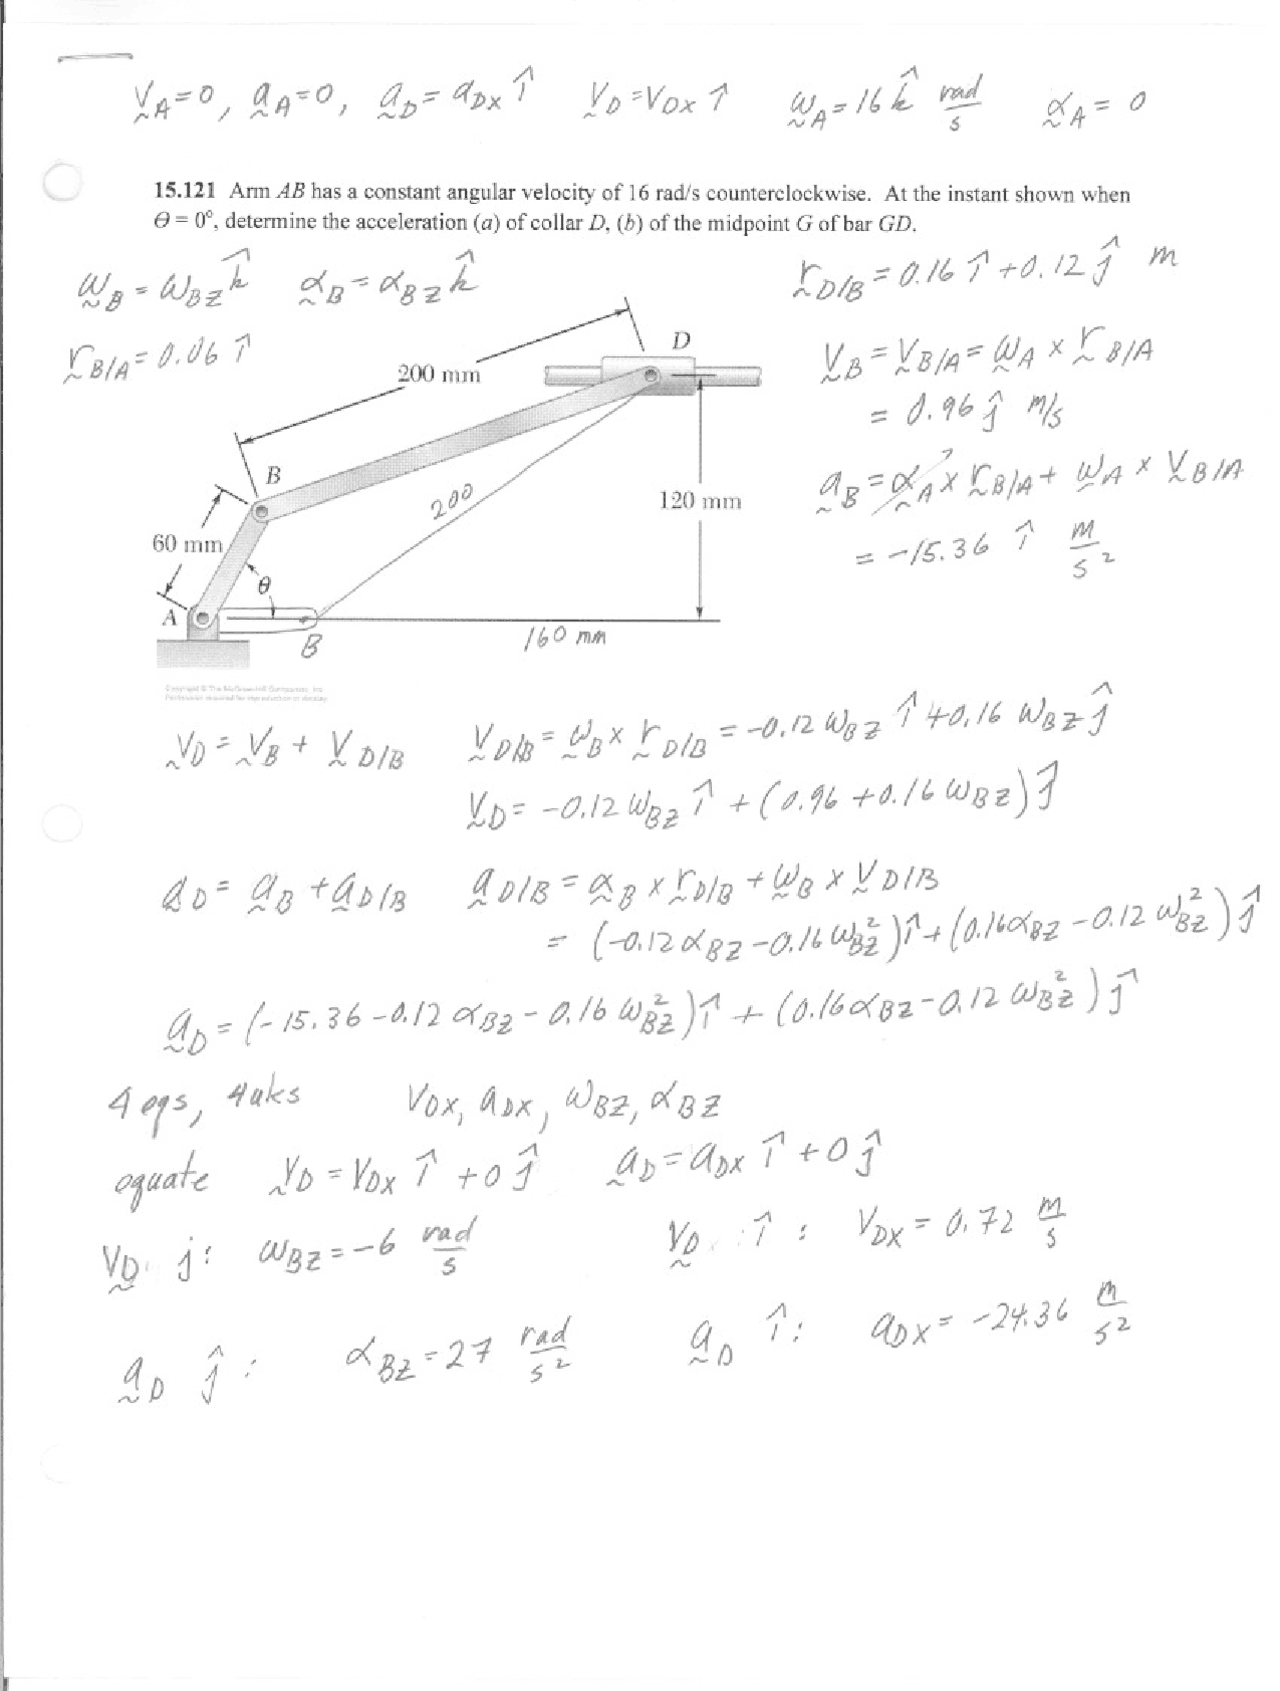 v_A = 0, a_A = 0, a_D = a_DX î v_D = v_DX î ω_A = 16 k̂ rad/s α_A = 0
15.121 Arm AB has a constant angular velocity of 16 rad/s counterclockwise. At the instant shown when
Θ = 0°, determine the acceleration (a) of collar D, (b) of the midpoint G of bar GD.
ω_B = ω_BZ k̂ α_B = α_BZ k̂ r_D/B = 0.16 î + 0.12 ĵ m
r_B/A = 0.06 î
D
200 mm
v_B = v_B/A = ω_A × r_B/A
= 0.96 ĵ m/s
B
200
120 mm
a_B = α_A × r_B/A + ω_A × v_B/A
60 mm
= -15.36 î m/s²
θ
A
B
160 mm
Copyright © The McGraw-Hill Companies, Inc.
Permission required for reproduction or display.
v_D = v_B + v_D/B v_D/B = ω_B × r_D/B = -0.12 ω_BZ î + 0.16 ω_BZ ĵ
v_D = -0.12 ω_BZ î + (0.96 + 0.16 ω_BZ) ĵ
a_D = a_B + a_D/B a_D/B = α_B × r_D/B + ω_B × v_D/B
= (-0.12 α_BZ - 0.16 ω_BZ²) î + (0.16 α_BZ - 0.12 ω_BZ²) ĵ
a_D = (-15.36 - 0.12 α_BZ - 0.16 ω_BZ²) î + (0.16 α_BZ - 0.12 ω_BZ²) ĵ
4 eqs, 4 uks v_DX, a_DX, ω_BZ, α_BZ
equate v_D = v_DX î + 0 ĵ a_D = a_DX î + 0 ĵ
v_D j: ω_BZ = -6 rad/s v_D î: v_DX = 0.72 m/s
a_D ĵ: α_BZ = 27 rad/s² a_D î: a_DX = -24.36 m/s²